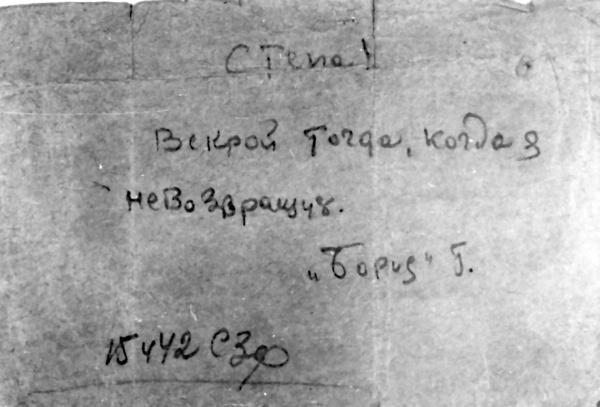 Степа!
Вскрой тогда, когда я
не возвращус.
„Борис" Г.
15 4 42 СЗФ